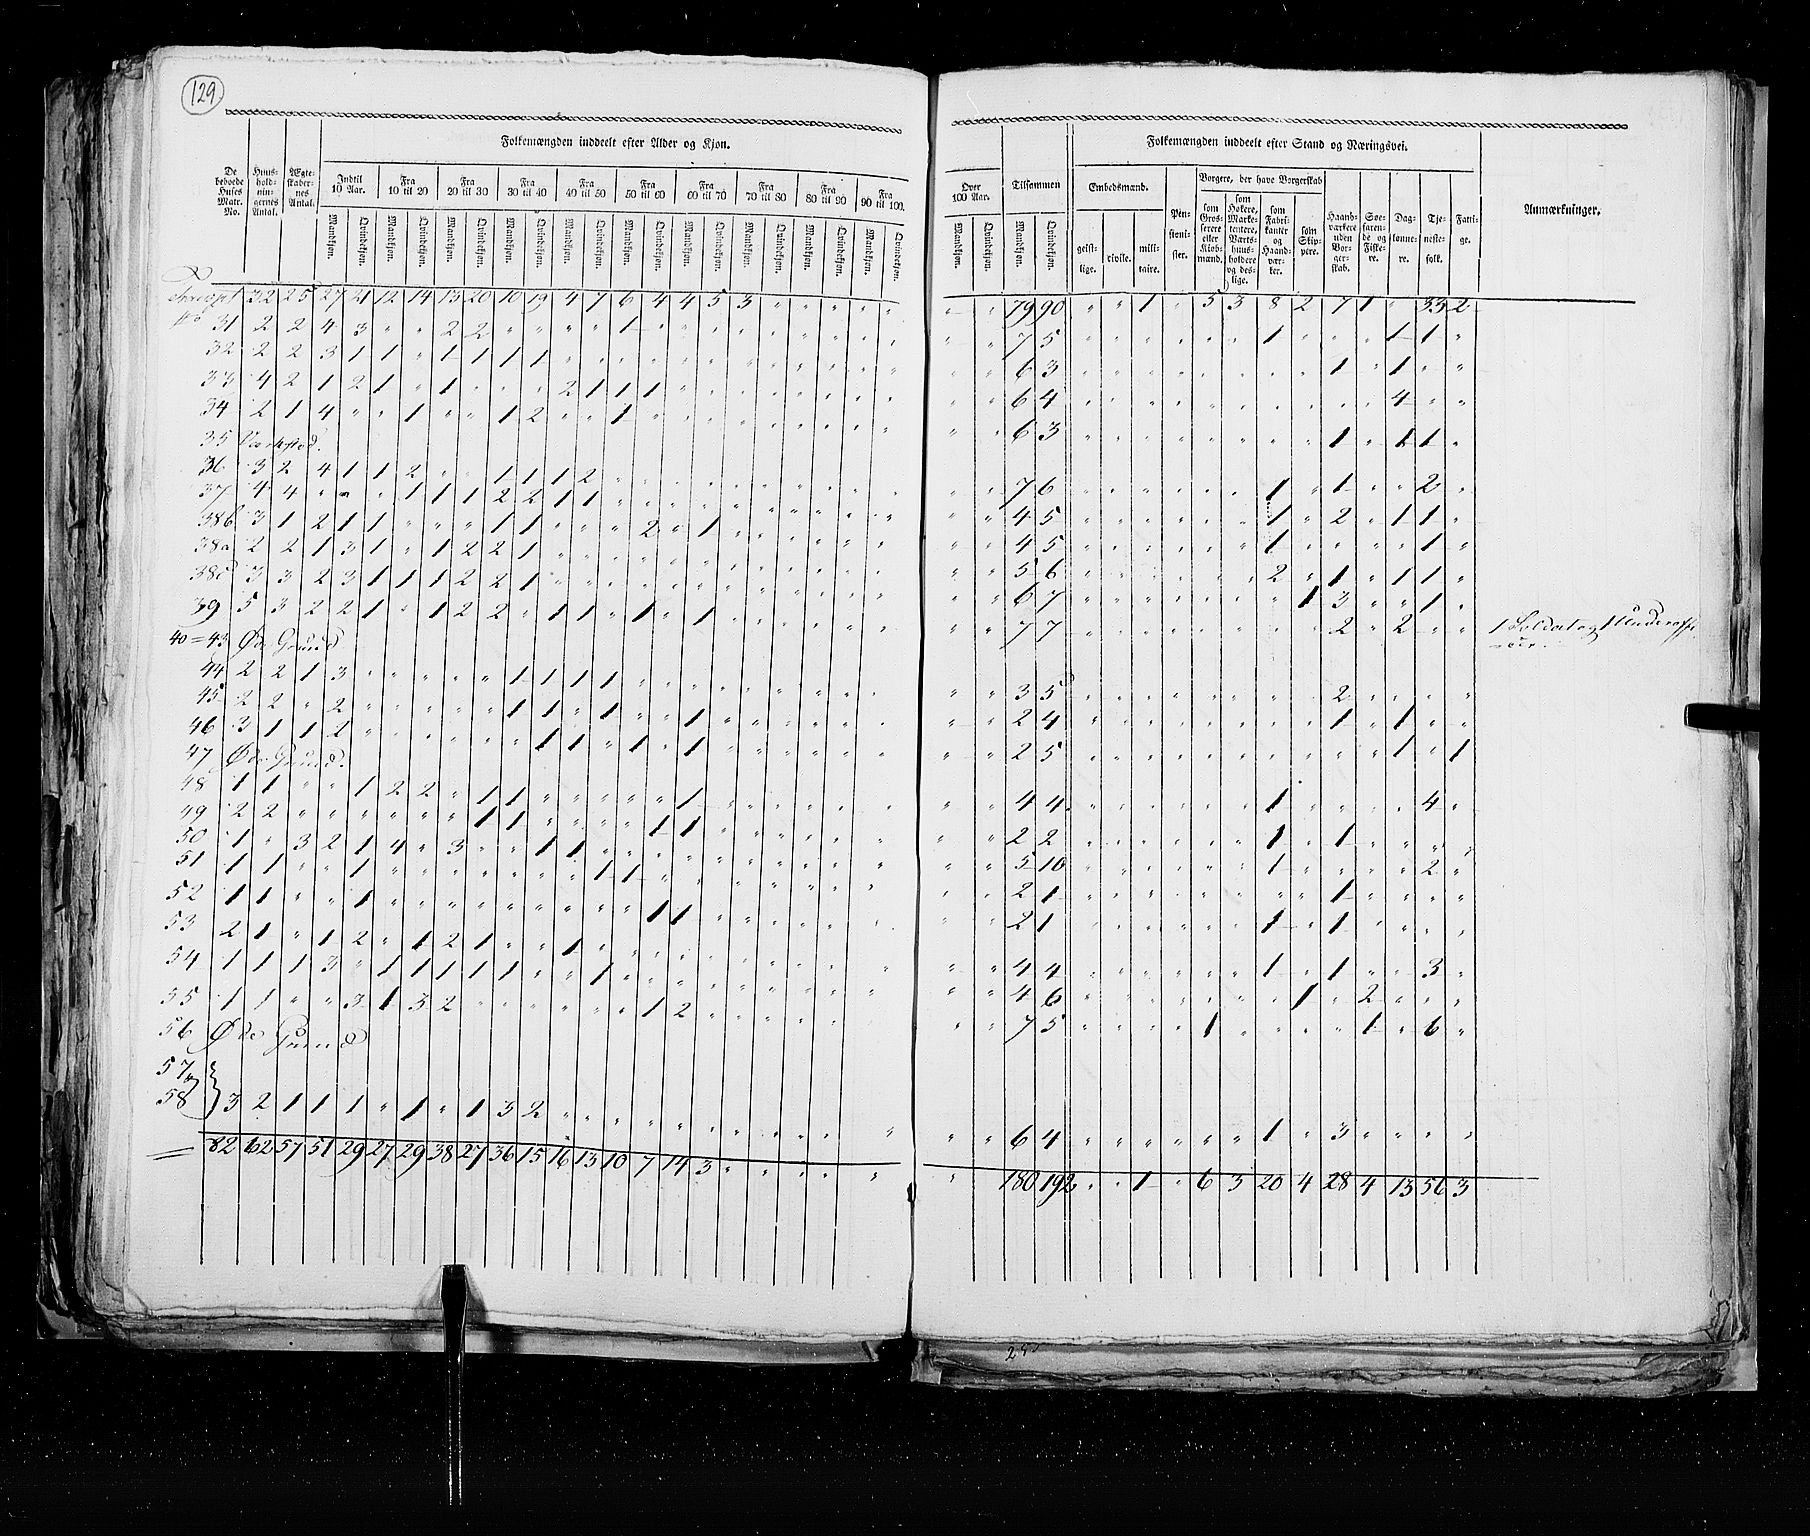 129
Folkemængden inddeelt efter Alder og Kjøn.
De beboede Huses Matr. No. | Huus-hold-nin-gernes Antal. | Ægte-skaber-nes Antal. | Indtil 10 Aar. | Fra 10 til 20 | Fra 20 til 30 | Fra 30 til 40 | Fra 40 til 50 | Fra 50 til 60 | Fra 60 til 70 | Fra 70 til 80 | Fra 80 til 90 | Fra 90 til 100.
Mandkjøn. Qvindekjøn. Mandkjøn. Qvindekjøn. Mandkjøn. Qvindekjøn. Mandkjøn. Qvindekjøn. Mandkjøn. Qvindekjøn. Mandkjøn. Qvindekjøn. Mandkjøn. Qvindekjøn. Mandkjøn. Qvindekjøn. Mandkjøn. Qvindekjøn. Mandkjøn. Qvindekjøn.
32 25 27 21 12 14 13 20 10 19 4 7 6 4 4 5 3 " " " " "
No 31 2 2 4 3 " " 2 2 " " " " 1 " " " " " " " " "
32 2 2 3 1 1 " 1 1 1 1 " " " " " " " " " " " "
33 4 2 1 2 1 " 1 " " " 2 1 1 1 " " " " " " " "
34 2 1 4 " " 1 " " 1 2 " " 1 " " " " " " " " "
35 Værksted.
36 3 2 4 1 1 2 " " 1 1 1 2 " " " " " " " " " "
37 4 4 " " " 1 1 1 2 2 1 1 " " " " " " " " " "
38b 3 1 2 1 1 " " " 1 1 " " " 2 " 1 " " " " " "
38a 2 2 1 3 1 " 1 2 2 1 " " " " " " " " " " " "
38c 3 3 2 3 1 1 1 2 2 1 " " " " " " " " " " " "
39 5 3 2 2 1 " 1 2 2 " 1 1 " 1 " 1 " " " " " "
40=43 Øde Grund
44 2 2 1 3 " " " " " 1 1 1 1 " " " " " " " "
45 2 2 " 2 " " " " " 1 1 " 1 " " 1 " " " " "
46 3 1 1 2 " " " " " " 1 1 " 1 " 1 " " " " "
47 Øde Grund.
48 1 1 " " 1 2 2 " 1 1 " " " " " 1 " " " " "
49 2 2 " " " " " " 1 1 " " " " 1 1 " " " " "
50 1 " 3 2 1 4 " 3 " " 1 1 " " " " " " " " "
51 1 1 " " 1 " " " " " " " 1 1 " " " " " " "
52 1 1 " " 1 " " " " " " " " " 1 1 " " " " "
53 2 1 " 1 2 " 1 2 1 " " 1 " " " " " " " " "
54 1 1 1 3 " 1 1 1 1 1 " " 1 " " " " " " " "
55 1 1 " " 3 1 3 2 " " " " " " 1 2 " " " " "
56 Øde Grund
57
58 3 2 1 1 1 " 1 " 1 3 2 " " " " " " " " " "
82 62 57 51 29 27 29 38 27 36 15 16 13 10 7 14 3 " " " " "
Folkemængden inddeelt efter Stand og Næringsvei.
Over 100 Aar. | Tilsammen | Embedsmænd. | Pensionister. | Borgere, der have Borgerskab | Haandværkere uden Borgerskab. | Søefarende og Fiskere. | Dag-lønne-re. | Tje-neste-folk. | Fatti-ge. | Anmærkninger.
Mandkjøn. Qvindekjøn. Mandkjøn. Qvindekjøn. geist-lige. civile. mili-taire. som Gros-serere eller Kiøb-mænd. som Høkere, Marke-tentere, Værts-huus-holdere og des-lige. som Fabri-kanter og Haand-vær-ker. som Skip-pere.
" " 79 90 " " 1 " 5 3 8 2 7 1 " 33 2
" " 7 5 " " " " " " 1 " " " 1 1 "
" " 6 3 " " " " " " " " 1 " 1 " "
" " 6 4 " " " " " " " " " " 4 " "
" " 6 3 " " " " " " " " 1 " 1 1 "
" " 7 6 " " " " " " 1 " 1 " " 2 "
" " 4 5 " " " " " " 1 " 2 " 1 1 "
" " 4 5 " " " " " " 1 " " " " 1 "
" " 5 6 " " " " " " 2 " 1 " 1 1 "
" " 6 7 " " " " " " " 1 3 " " 1 "
" " 7 7 " " " " " " " " 2 " 2 " " 1 Soldat og 1 Underoffi-
ceer.
" " 3 5 " " " " " " " " 2 " " " "
" " 2 4 " " " " " " " " 1 " 1 " "
" " 2 5 " " " " " " " " " " 1 " 1
" " 4 4 " " " " " " 1 " " " " 4 "
" " 2 2 " " " " " " 1 " 1 " " " "
" " 5 10 " " " " " " 1 " " " " 2 "
" " 2 1 " " " " " " " " 1 " " " "
" " 2 1 " " " " " " 1 " 1 " " " "
" " 4 4 " " " " " " 1 " 1 " " 3 "
" " 4 6 " " " " " " " 1 " 2 " " "
" " 7 5 " " " " 1 " " " " 1 " 6 "
" " 6 4 " " " " " " 1 " 3 " " " "
" " 180 192 " " 1 " 6 3 20 4 28 4 13 56 3